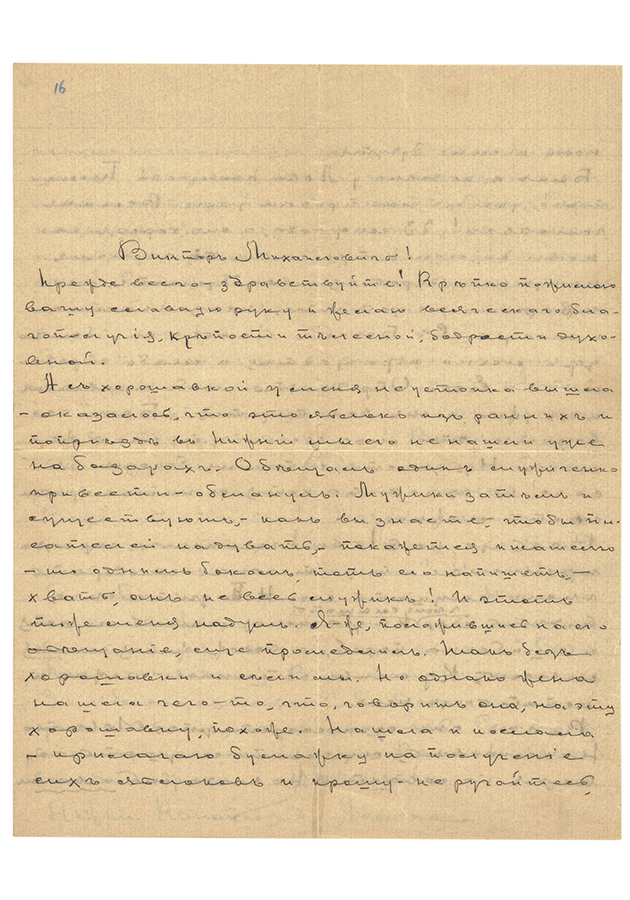 16
Викторъ Михайловичъ!
Прежде всего - здравствуйте! Крѣпко пожимаю
вашу славную руку и желаю всяческаго бла-
гополучія, крѣпости тѣлесной, бодрости духо-
вной.
А съ хорошавкой у меня неустойка вышла
- оказалось, что это яблоко изъ раннихъ и
по пріѣздѣ въ Нижній мы его не нашли уже
на базарахъ. Обѣщалъ одинъ мужиченко
привести - обманулъ. Мужики затѣмъ и
существуютъ, - какъ вы знаете, - чтобы пи-
сателей надувать, - покажется писателю
- то однимъ бокомъ, тотъ его напишетъ, -
хвать, анъ не весь мужикъ! И этотъ
тоже меня надулъ. Я-же, положившись на его
обѣщаніе, еще промедлилъ. Такъ безъ
хорошавки и съ мы. Но однако жена
нашла чего-то, что, говоритъ она, на эту
хорошавку похоже. Нашла и послала
- прилагаю бумажку на полученіе
сихъ яблоковъ и прошу - не ругайтесь,